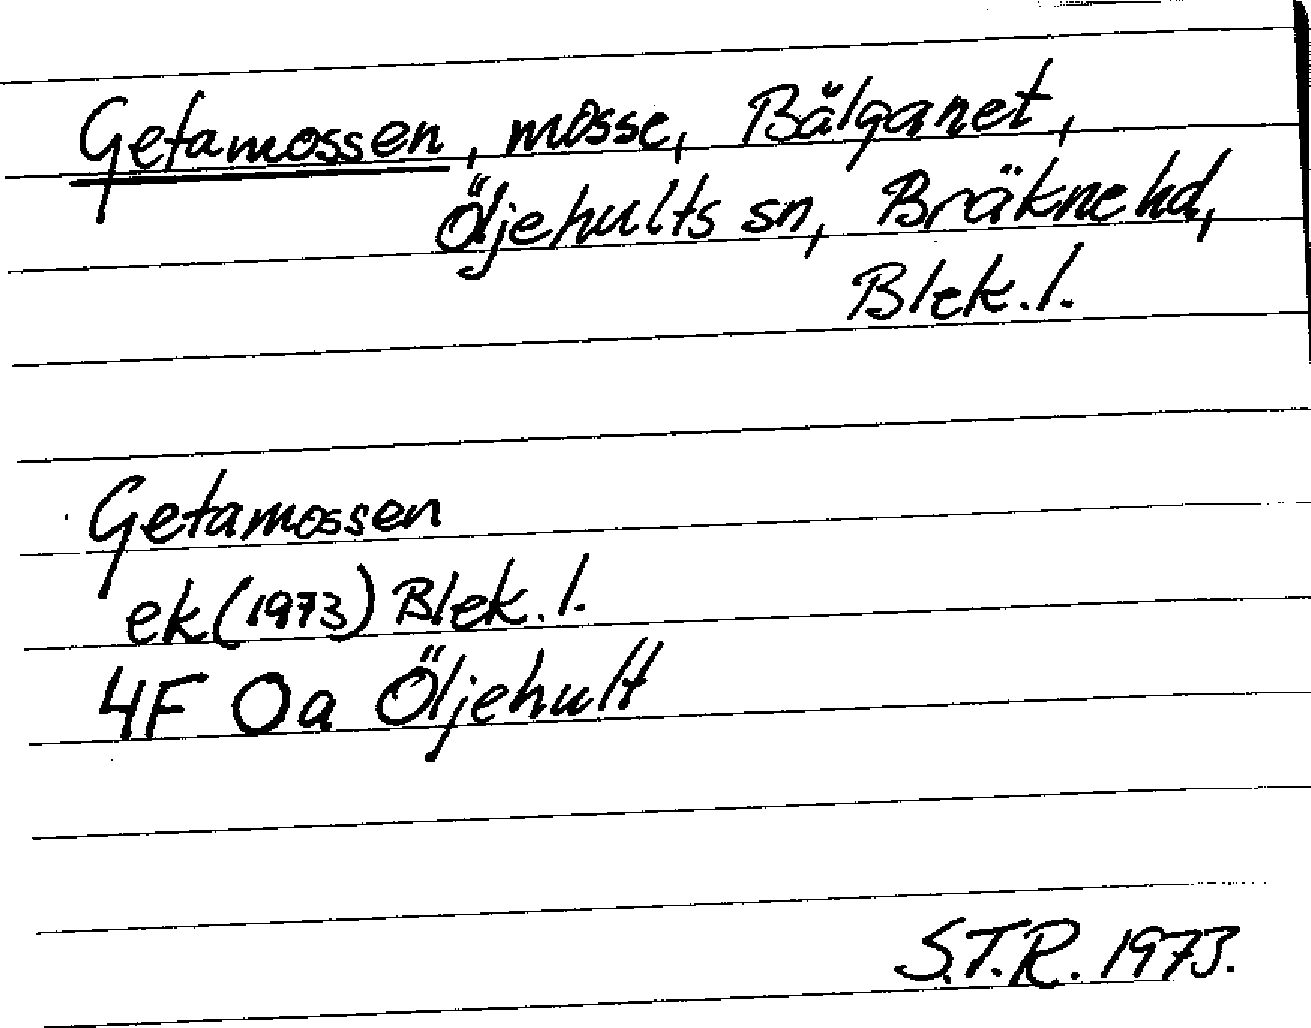 Getamossen, mosse, Bälganet,
Öljehults sn, Bräkne hd,
Blek. l.
Getamossen
ek (1973) Blek. l.
4F 0a Öljehult
S.T.R. 1973.